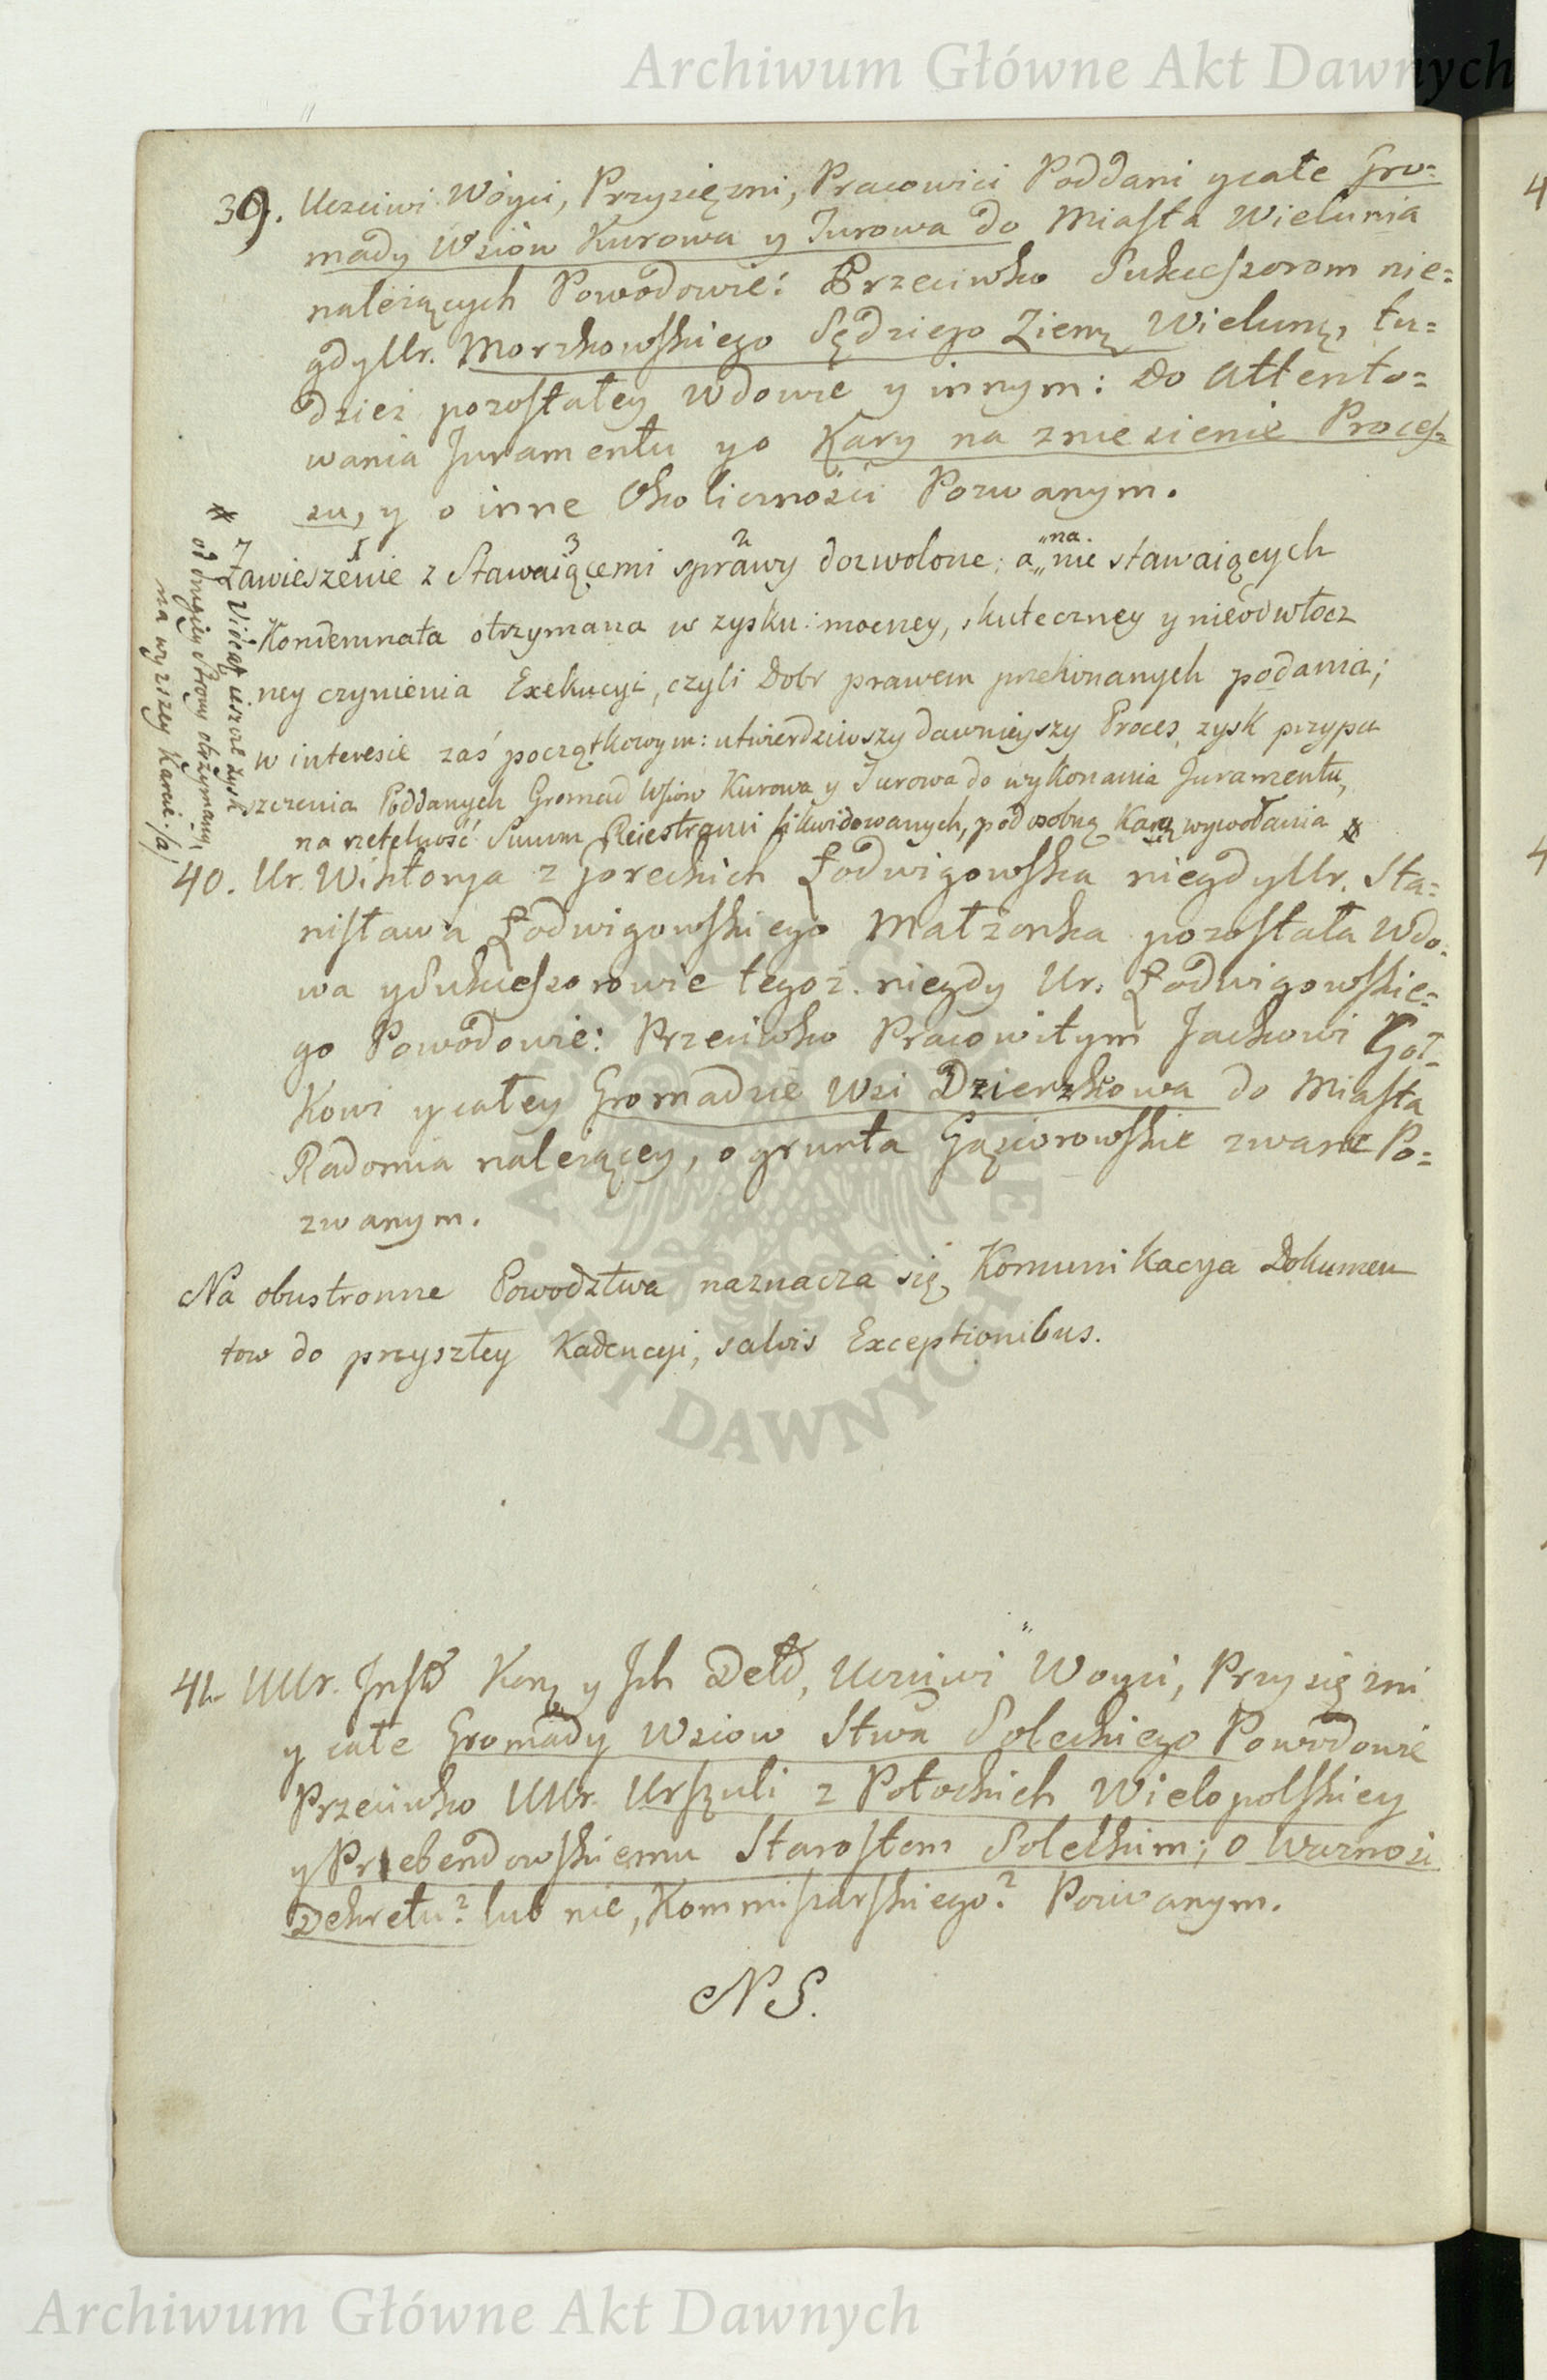 Archiwum Główne Akt Dawnych
39. Uczciwi Woyci, Przysięzni, Pracowici Poddani y całe Gro=
mady Wsiów Kurowa y Turowa do Miasta Wielunia
należących Powodowie: Przeciwko Sukcessorom nie=
gdy Ur. Morzkowskiego Sędziego Ziemę Wielunę, tu=
dzież pozostałey Wdowie y innym: Do Attento=
wania Juramentu y o Kary na zniesienie Proces=
su, y o inne Okoliczności Pozwanym.
Zawieszenie z Stawaiącemi sprawy dozwolone; a „na „nie stawaiących
Kondemnata otrzymana w zysku: mocney, skuteczney y nieodwłocz
ney czynienia Exekucyi, czyli Dobr prawem przekonanych podania;
w interesie zaś początkowym: utwierdziwszy dawnieyszy Proces, zysk przypu
szczenia Poddanych Gromad Wsiow Kurowa y Turowa do wykonania Juramentu,
na rzetelność Summ Reiestrami likwidowanych, pod osobną Karą wywołania
zysk
od drugiey Strony otrzymany,
na wyższey Karcie.
40. Ur. Wiktorya z Goreckich Łodwigowska niegdy Ur. Sta=
nisława Łodwigowskiego Małzonka pozostała Wdo=
wa y Sukcessorowie tegoż niegdy Ur. Łodwigowskie=
go Powodowie: Przeciwko Pracowitym Jackowi Goł=
kowi y całey Gromadzie Wsi Dzierzkowa do Miasta
Radomia należącey, o grunta Gąsiorowskie zwane Po=
zwanym.
Na obustronne Powodztwa naznacza się Komunikacya Dokumen
tow do przyszłey Kadencyi, salvis Exceptionibus.
41. UUr. Inst Kor y Ich Deld, Uczciwi Woyci, Przysięzni
y całe Gromady Wsiow Stwa Soleckiego Powodowie
Przeciwko UUr. Urszuli z Potockich Wielopolskiey
y Przebendowskiemu Starostom Soleckim; o Wazność
Dekretu? lub nie, Kommissarskiego? Pozwanym.
NS.
ARCHIWUM GŁÓWNE AKT DAWNYCH
Archiwum Główne Akt Dawnych